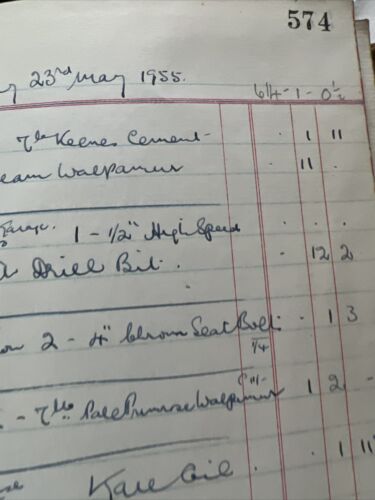 574
23rd May 1955.
614 - 1 - 0½
7 lbs Keenes Cement - 1 11
eam Walpamur 11 .
Garage. 1 - 1/2" High Speed . . .
Drill Bit. - 12 2
2 - 4" Chrom Seat Bolt. - 1 3
1/4
- 7 lbs Pale Primrose Walpamur 1 2 -
. 1 11